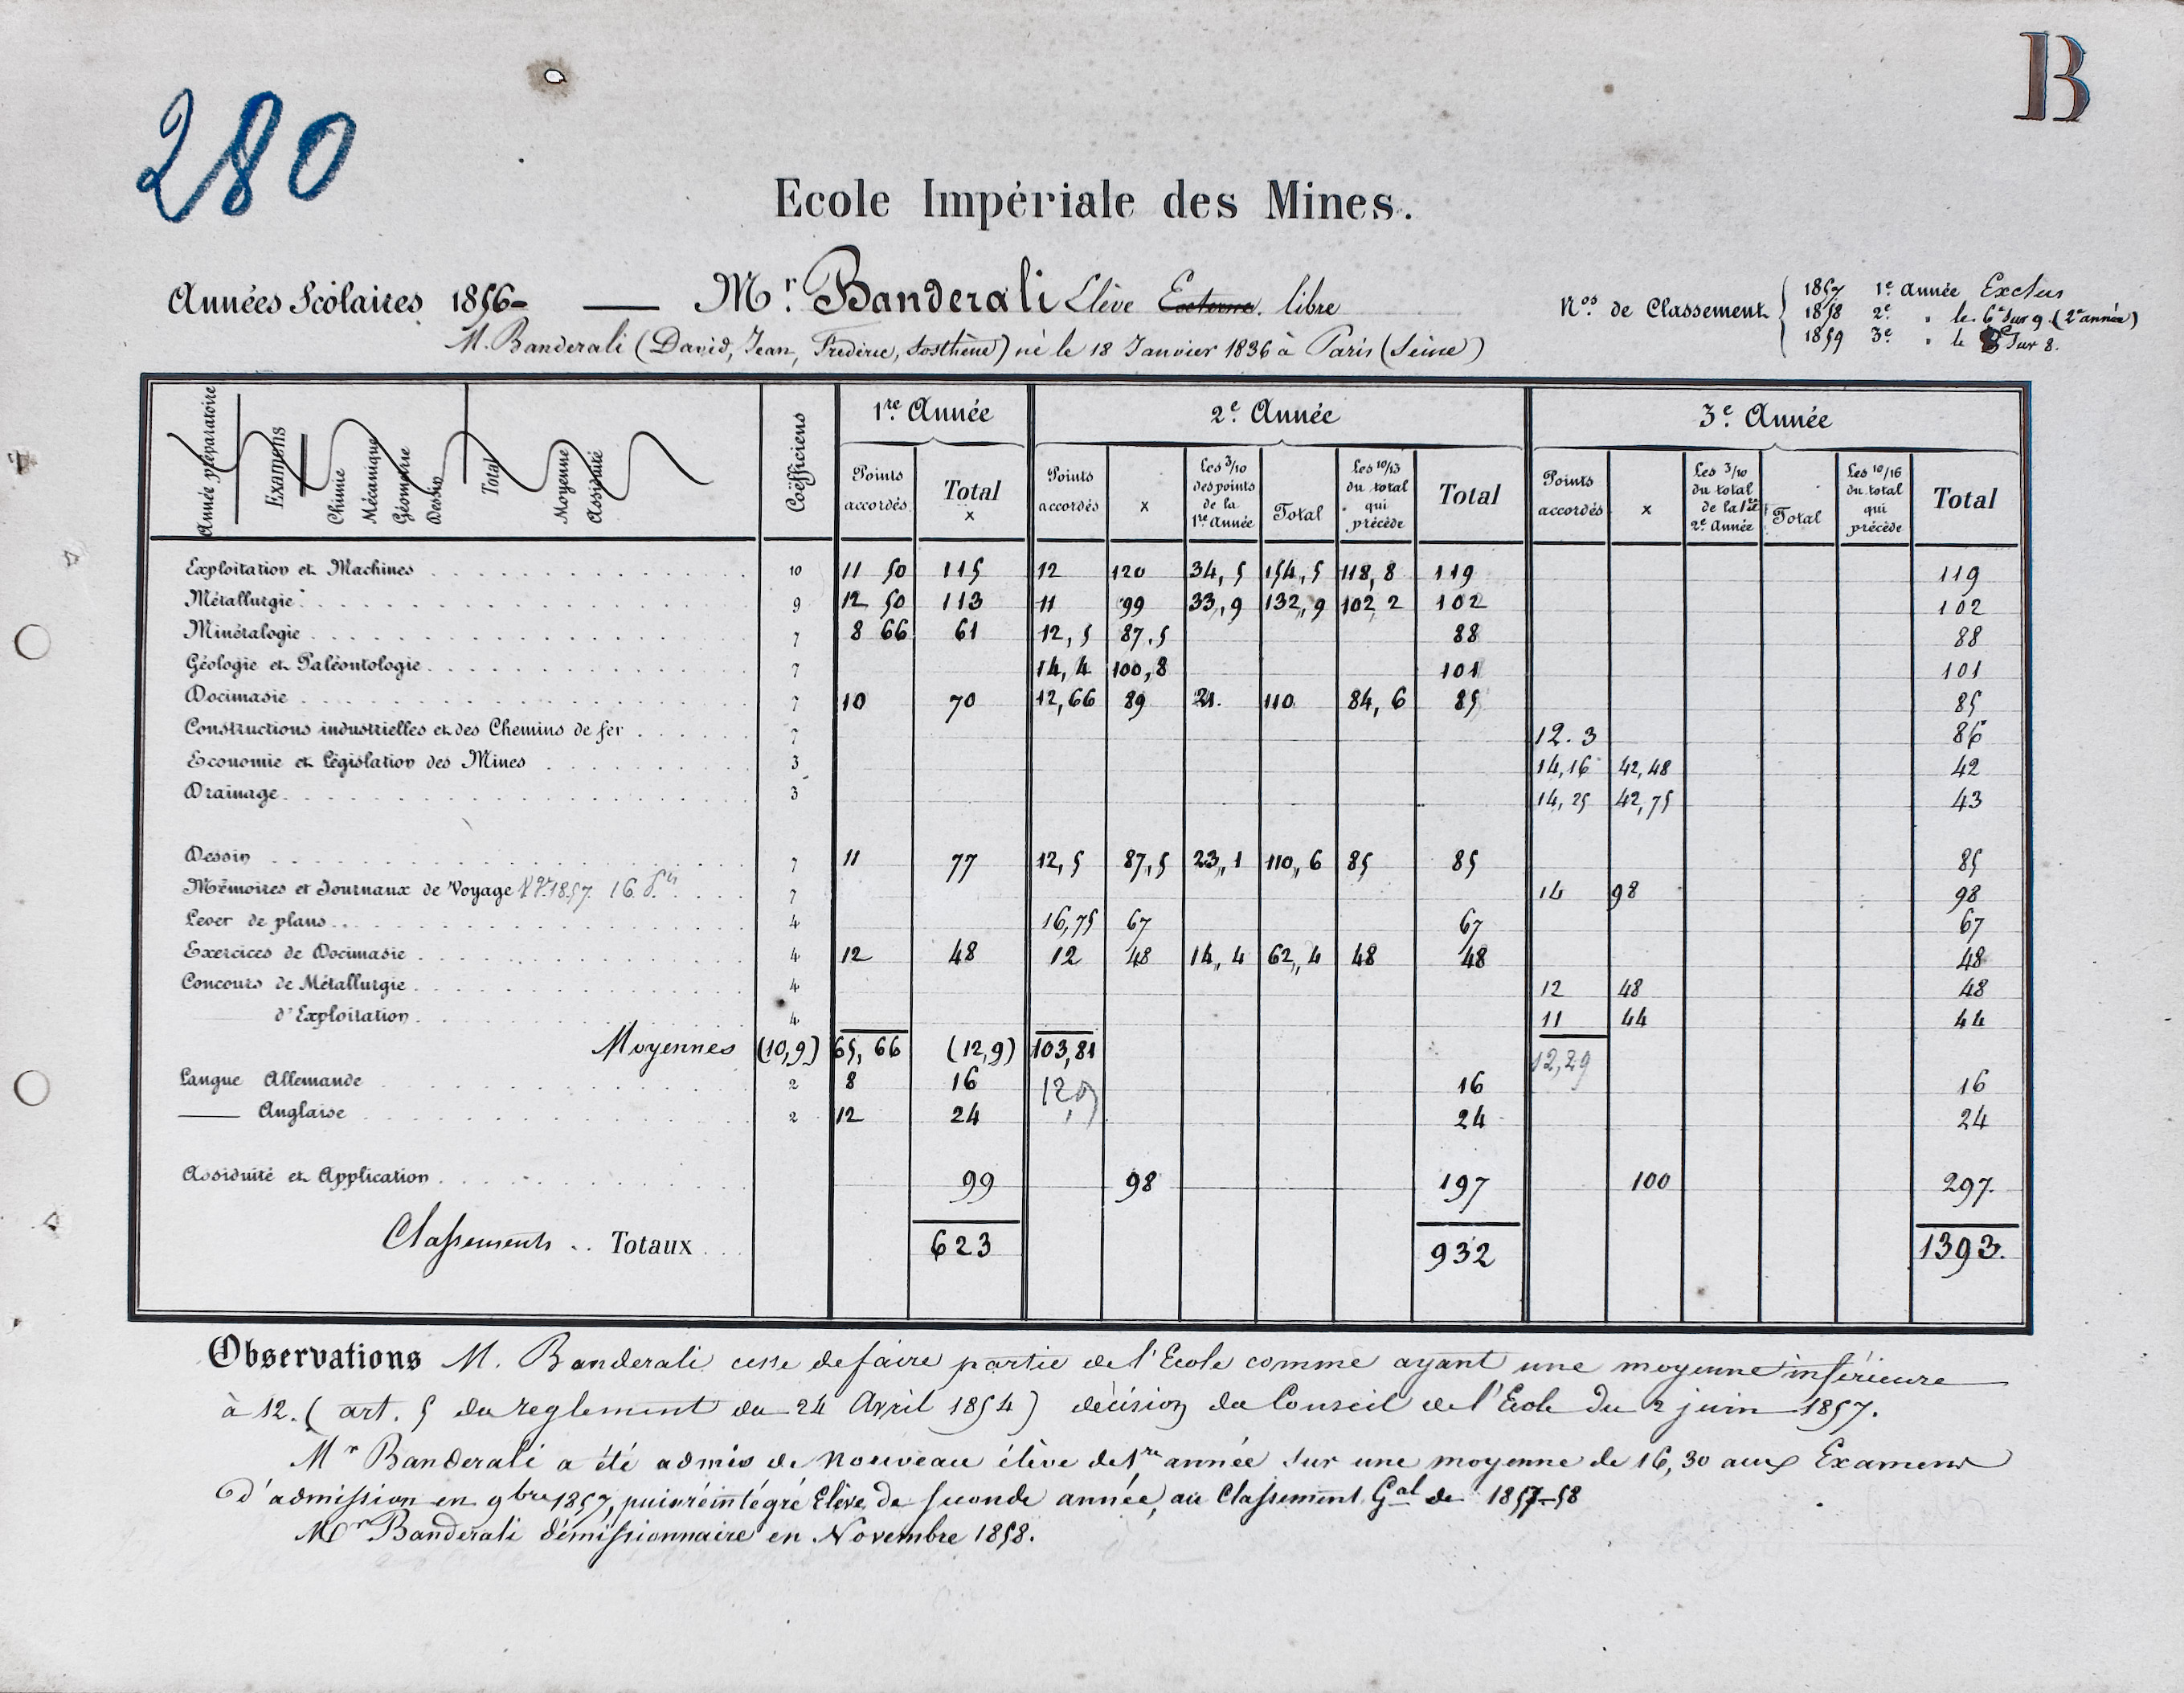 B
280
Ecole Impériale des Mines.
Années Scolaires 1856- — Mr. Banderali Elève Externe. libre
M. Banderali (David, Jean, Frédéric, Sosthène) né le 18 Janvier 1836 à Paris (Seine)
Nos. de Classement
1857 1e année Exclus
1858 2e. " le 6e sur 9 (2e année)
1859 3e " le sur 8.
Année préparatoire Examens Chimie Mécanique Géométrie Dessin Total Moyenne Assiduité
Coëfficiens
1re Année 2e. Année 3e. Année
Points accordés Total x Points accordés x Les 3/10 des points de la 1re Année Total Les 10/13 du total qui précède Total Points accordés x Les 3/10 du total de la 1re et 2e Année Total Les 10/16 du total qui précède Total
Exploitation et Machines 10 11 50 115 12 120 34,5 154,5 118,8 119 119
Métallurgie 9 12 50 113 11 99 33,9 132,9 102 2 102 102
Minéralogie 7 8 66 61 12,5 87,5 88 88
Géologie et Paléontologie 7 14,4 100,8 101 101
Docimasie 7 10 70 12,66 89 21. 110 84,6 85 85
Constructions industrielles et des Chemins de fer 7 12.3 86
Economie et Législation des Mines 3 14,16 42,48 42
Drainage 3 14,25 42,75 43
Dessin 7 11 77 12,5 87,5 23,1 110,6 85 85 85
Mémoires et Journaux de Voyage 1857. 16 7 14 98 98
Lever de plans 4 16,75 67 67 67
Exercices de Docimasie 4 12 48 12 48 14,4 62,4 48 48 48
Concours de Métallurgie 4 12 48 48
— d'Exploitation 4 11 44 44
Moyennes (10,9) 65,66 (12,9) 103,81 12,29
Langue Allemande 2 8 16 12,9 16 16
— Anglaise 2 12 24 24 24
Assiduité et Application 99 98 197 100 297.
Classements .. Totaux 623 932 1393.
Observations M. Banderali cesse de faire partie de l'Ecole comme ayant une moyenne inférieure
à 12. (art. 5 du reglement du 24 Avril 1854) décision du Conseil de l'Ecole du 2 juin 1857.
Mr Banderali a été admis de nouveau élève de 1re année sur une moyenne de 16,30 aux Examens
d'admission en 9bre 1857, puis réintégré Elève de seconde année, au Classement Gal de 1857-58
Mr Banderali démissionnaire en Novembre 1858.